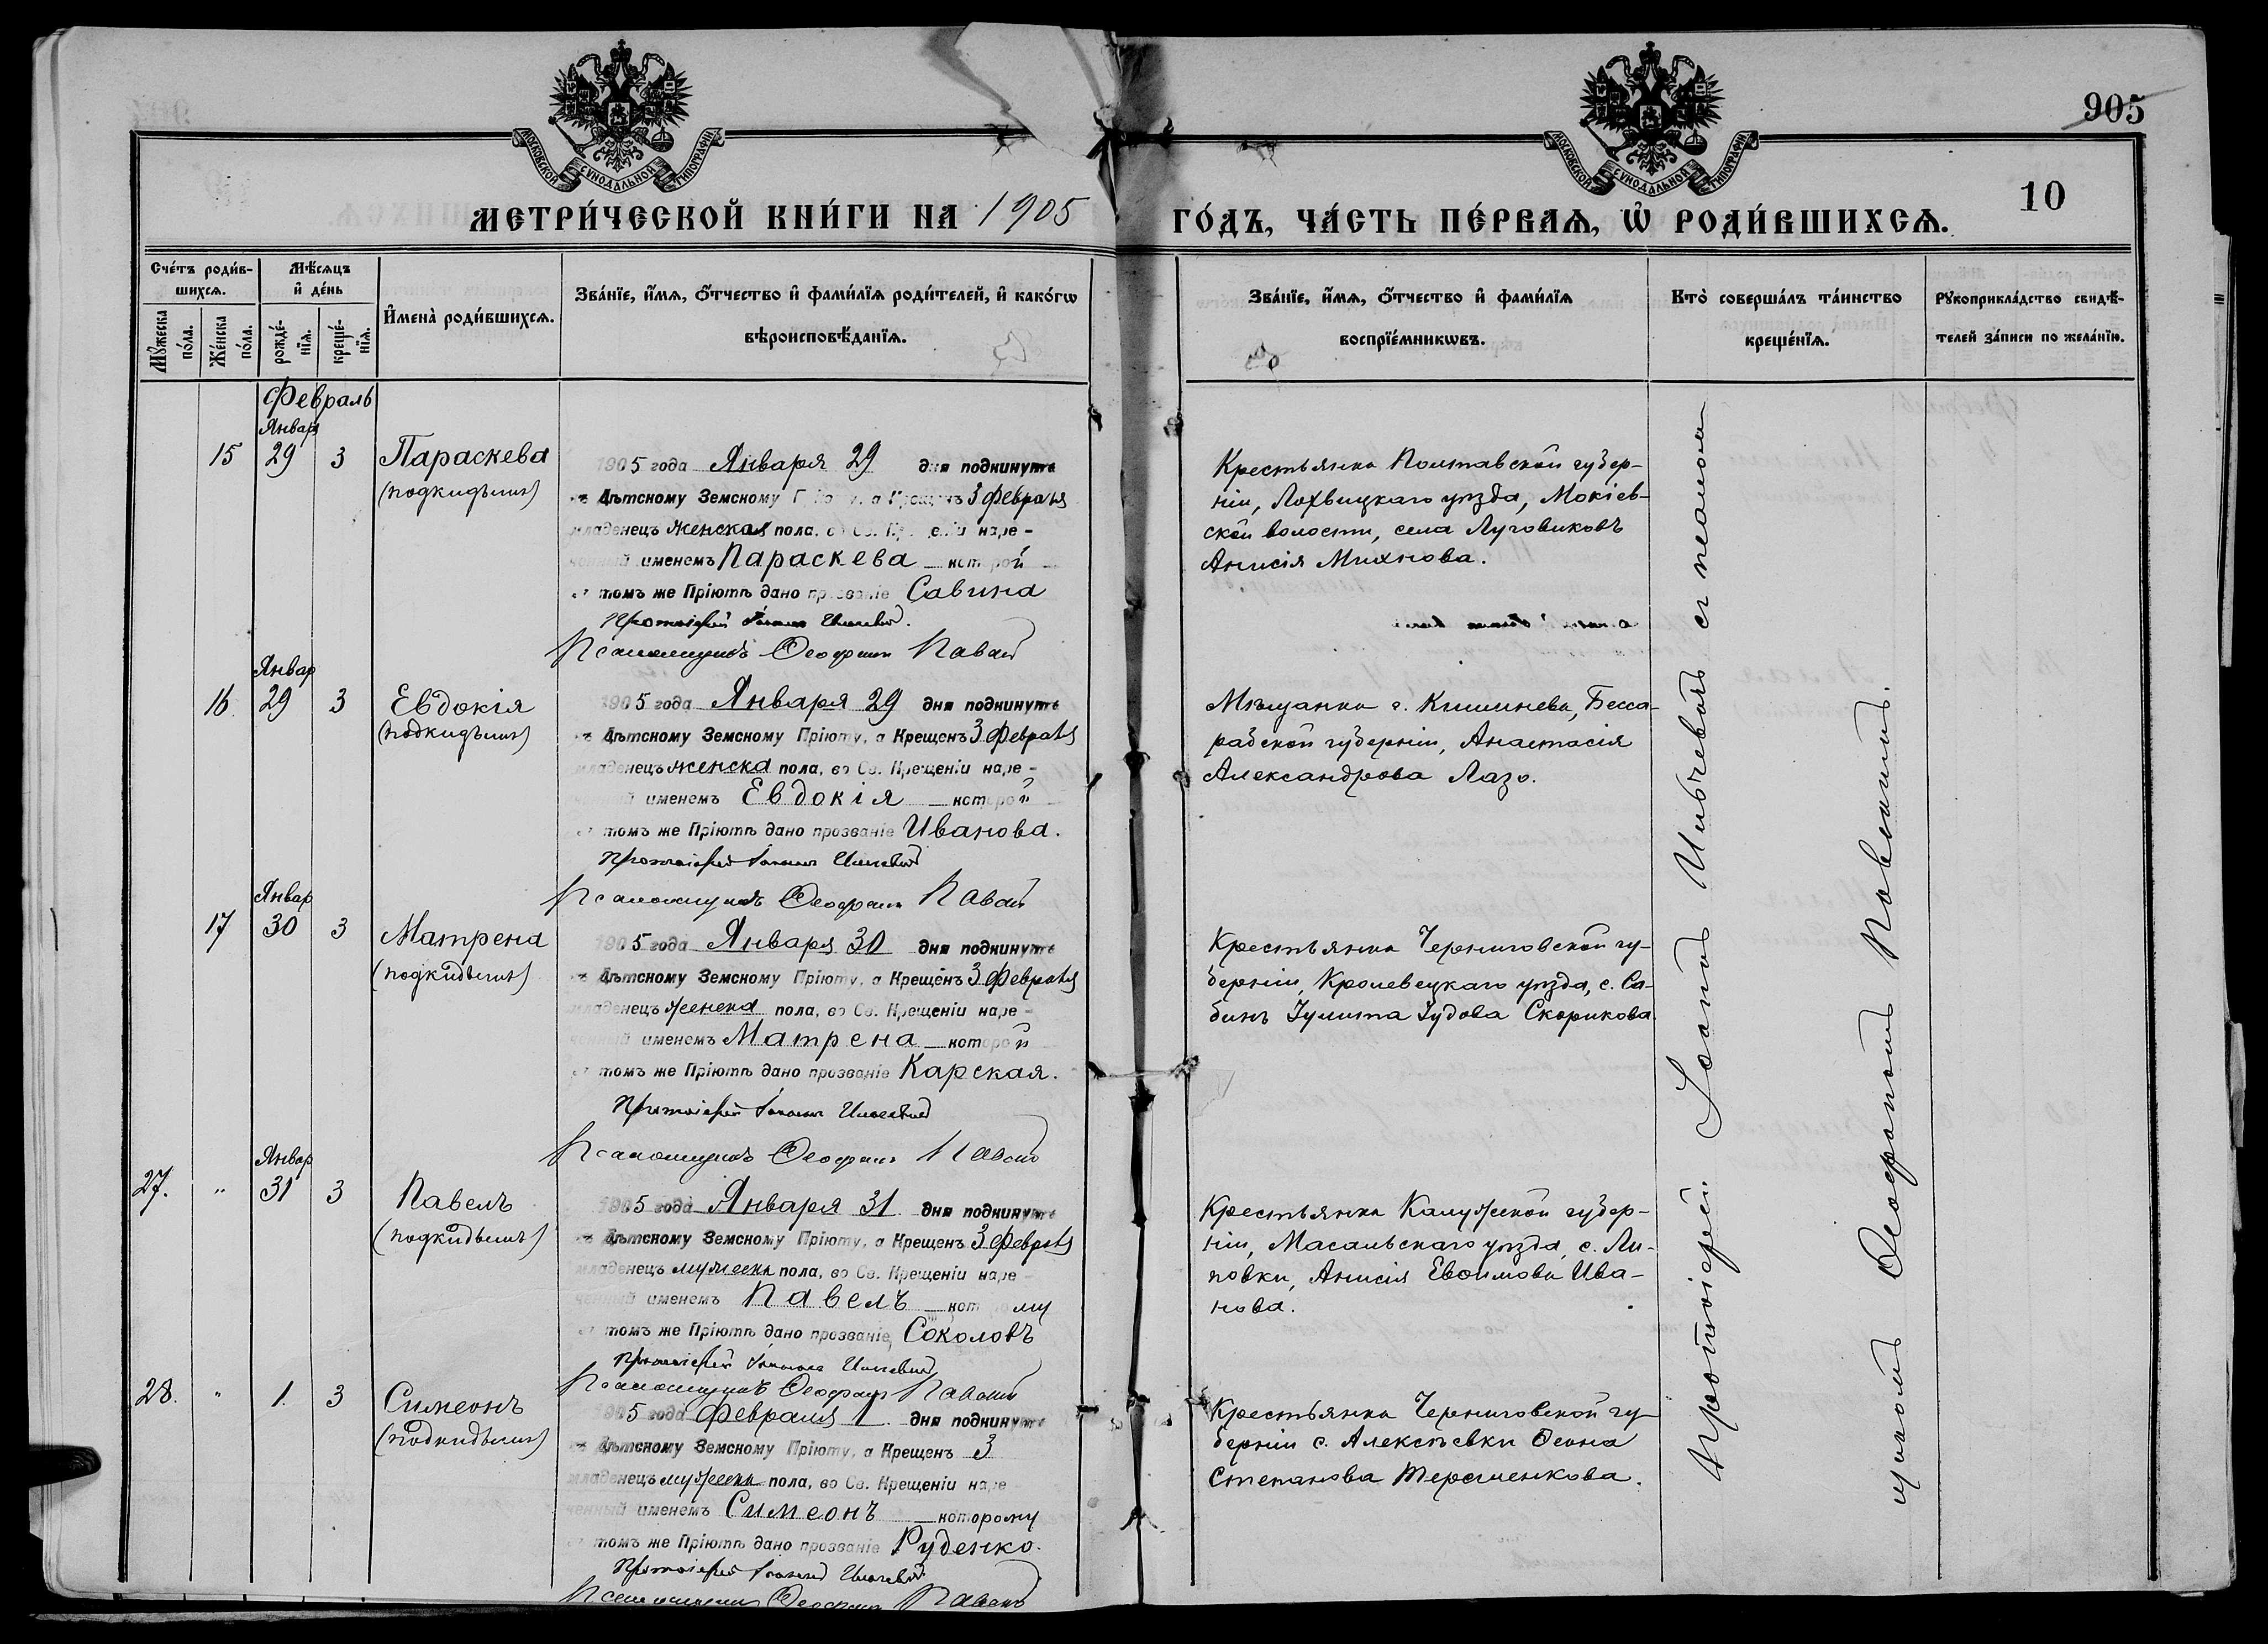 МОСКОВСКОЙ СѴНОДАЛЬНОЙ ТИПОГРАФІИ
МОСКОВСКОЙ СѴНОДАЛЬНОЙ ТИПОГРАФІИ
905
10
МЕТРИ́ЧЕСКОЙ КНИ́ГИ НА 1905 ГО́ДЪ, ЧА́СТЬ ПЕ́РВАѦ, Ѡ҆ РОДИ́ВШИХСѦ.
Сче́тъ роди́в-
шихсѧ.
Мꙋ́жеска по́ла.
Же́нска по́ла.
Мѣ́сѧцъ
и҆ де́нь
рожде́-
нїѧ.
креще́-
нїѧ.
И҆мена̀ роди́вшихсѧ.
Зва́нїе, и҆́мѧ, ѻ҆́тчество и҆ фами́лїѧ роди́телей, и҆ како́гѡ
вѣроисповѣ́данїѧ.
Зва́нїе, и҆́мѧ, ѻ҆́тчество и҆ фами́лїѧ
воспрїе́мникѡвъ.
Кто̀ соверша́лъ та́инство
креще́нїѧ.
Рꙋкоприкла́дство свидѣ́-
телей за́писи по жела́нїю.
Февраль
Январ
15 29 3 Параскева
(подкидышъ)
1905 года Января 29 дня подкинута
Дѣтскому Земскому Пріюту, а Крещенъ 3 Февраля
младенецъ женская пола, во Св. Крещеніи наре-
ченный именемъ Параскева которой
томъ же Пріютѣ дано прозваніе Савина
Протоіерей Іоаннъ
Псаломщикъ Ѳеофанъ
Крестьянка Полтавской губер-
ніи, Лохвицкаго уѣзда, Мокіев-
ской волости, села Луговиковъ
Анисія Михнова.
Январ
16 29 3 Евдокія
(подкидышъ)
1905 года Января 29 дня подкинута
Дѣтскому Земскому Пріюту, а Крещенъ 3 Февраля
младенецъ женска пола, во Св. Крещеніи наре-
ченный именемъ Евдокія которой
томъ же Пріютѣ дано прозваніе Иванова.
Протоіерей Іоаннъ
Псаломщикъ Ѳеофанъ
Мѣщанка г. Кишинева, Бесса-
рабской губерніи, Анастасія
Александрова Лазо.
Январ
17 30 3 Матрена
(подкидышъ)
1905 года Января 30 дня подкинута
Дѣтскому Земскому Пріюту, а Крещенъ 3 Февраля
младенецъ женска пола, во Св. Крещеніи наре-
ченный именемъ Матрена которой
томъ же Пріютѣ дано прозваніе Карская.
Протоіерей Іоаннъ
Псаломщикъ Ѳеофанъ
Крестьянка Черниговской гу-
берніи, Кролевецкаго уѣзда, с. Са-
бинъ Іулита Іудова Скорикова
Январ
27. " 31 3 Павелъ
(подкидышъ)
1905 года Января 31 дня подкинута
Дѣтскому Земскому Пріюту, а Крещенъ 3 Февраля
младенецъ мужеска пола, во Св. Крещеніи наре-
ченный именемъ Павелъ которому
томъ же Пріютѣ дано прозваніе Соколовъ
Протоіерей Іоаннъ
Псаломщикъ Ѳеофанъ
Крестьянка Калужской губер-
ніи, Масальскаго уѣзда, с. Ли-
повки, Анисія Евѳимова Ива-
нова.
28. " 1. 3 Симеонъ
(подкидышъ)
1905 года Февраля 1 дня подкинута
Дѣтскому Земскому Пріюту, а Крещенъ 3
младенецъ мужеска пола, во Св. Крещеніи наре
ченный именемъ Симеонъ которому
томъ же Пріютѣ дано прозваніе Руденко.
Протоіерей Іоаннъ
Псаломщикъ Ѳеофанъ
Крестьянка Черниговской гу-
берніи с. Алексѣевки
Степанова Терещенкова.
Протоіерей Іоаннъ съ псалом
щикомъ Ѳеофаномъ